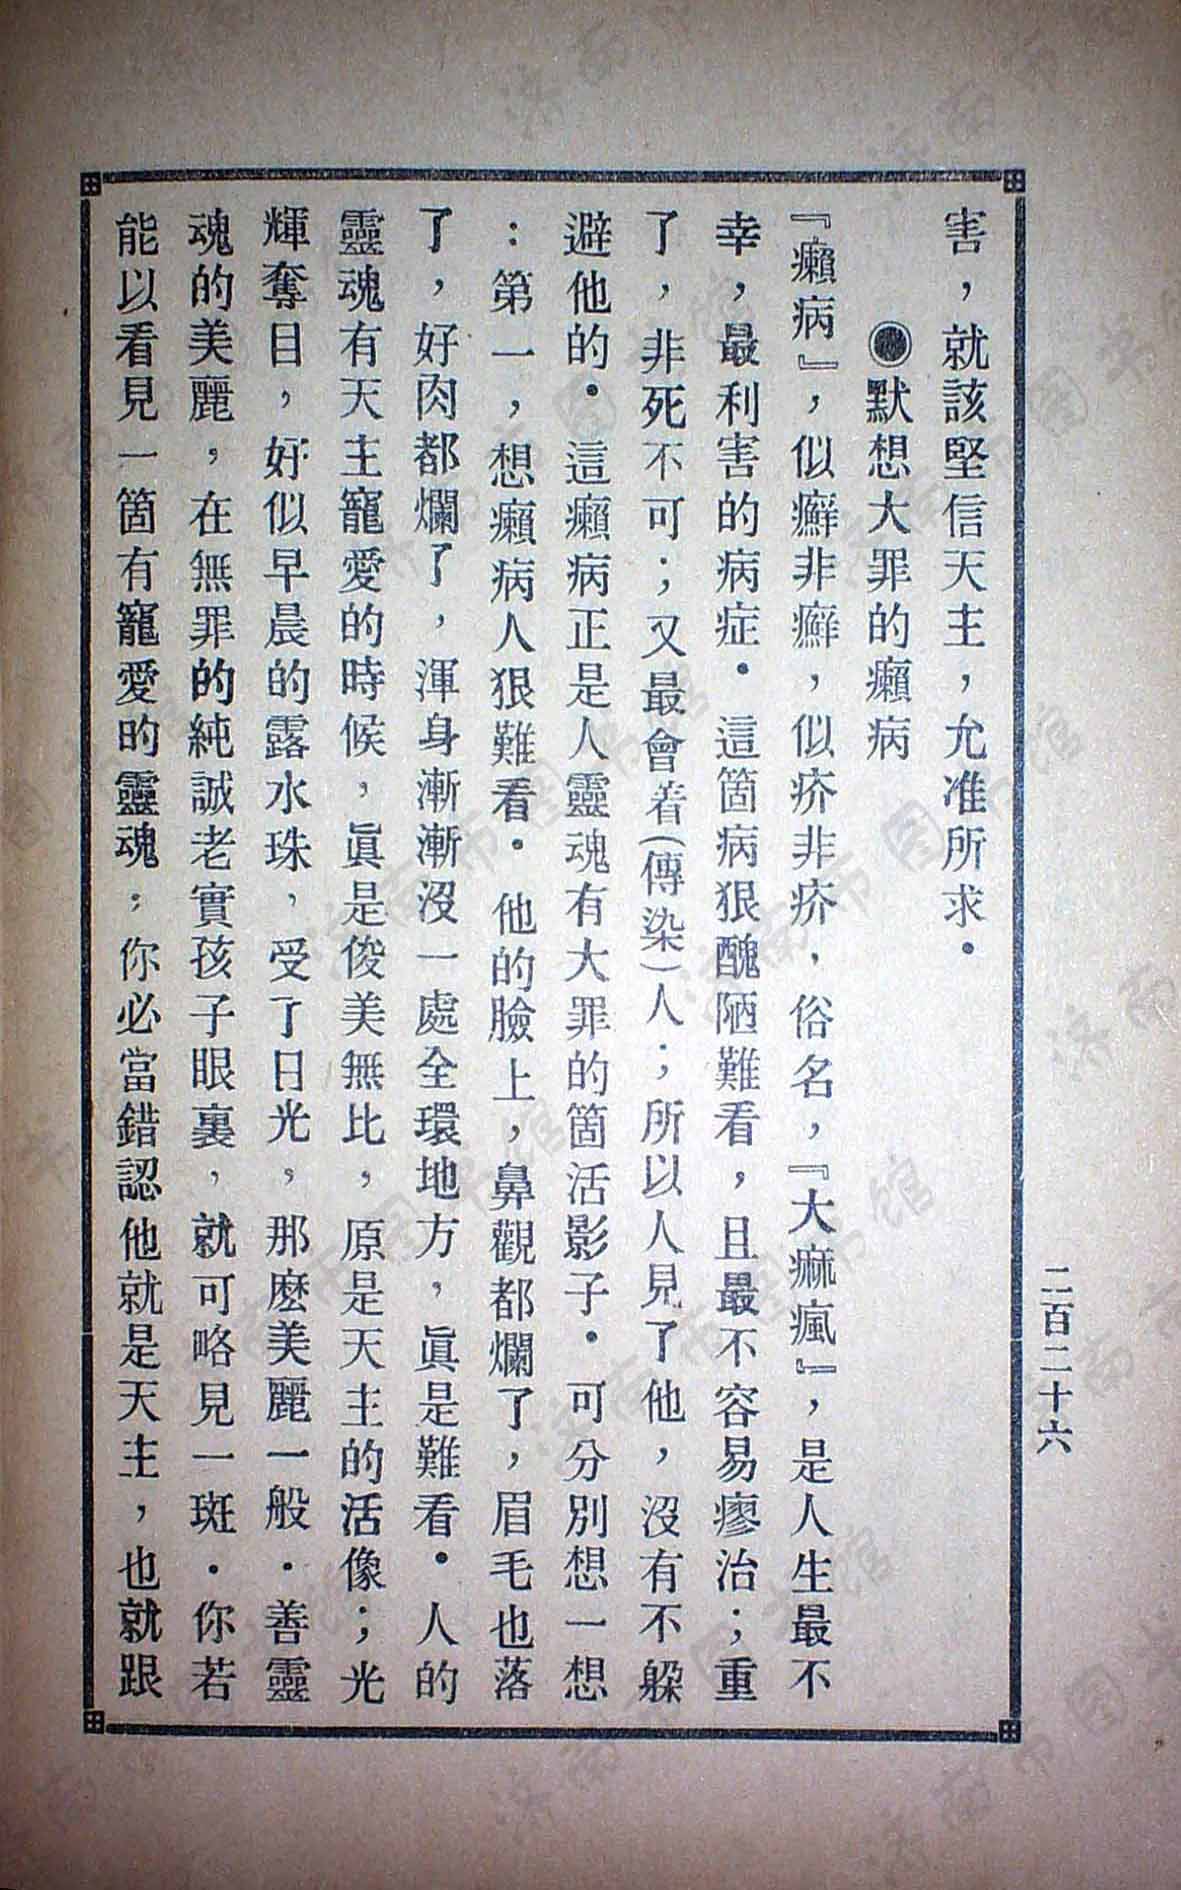 二百二十六
害，就該堅信天主，允准所求．
◉默想大罪的癩病
『癩病』，似癬非癬，似疥非疥，俗名，『大痲瘋』，是人生最不
幸，最利害的病症．這箇病狠醜陋難看，且最不容易瘳治；重
了，非死不可；又最會着(傳染)人；所以人見了他，沒有不躲
避他的．這癩病正是人靈魂有大罪的箇活影子．可分別想一想
：第一，想癩病人狠難看．他的臉上，鼻觀都爛了，眉毛也落
了，好肉都爛了，渾身漸漸沒一處全環地方，眞是難看．人的
靈魂有天主寵愛的時候，眞是俊美無比，原是天主的活像；光
輝奪目，好似早晨的露水珠，受了日光，那麽美麗一般．善靈
魂的美麗，在無罪的純誠老實孩子眼裏，就可略見一斑．你若
能以看見一箇有寵愛的靈魂；你必當錯認他就是天主，也就跟
济南市图书馆